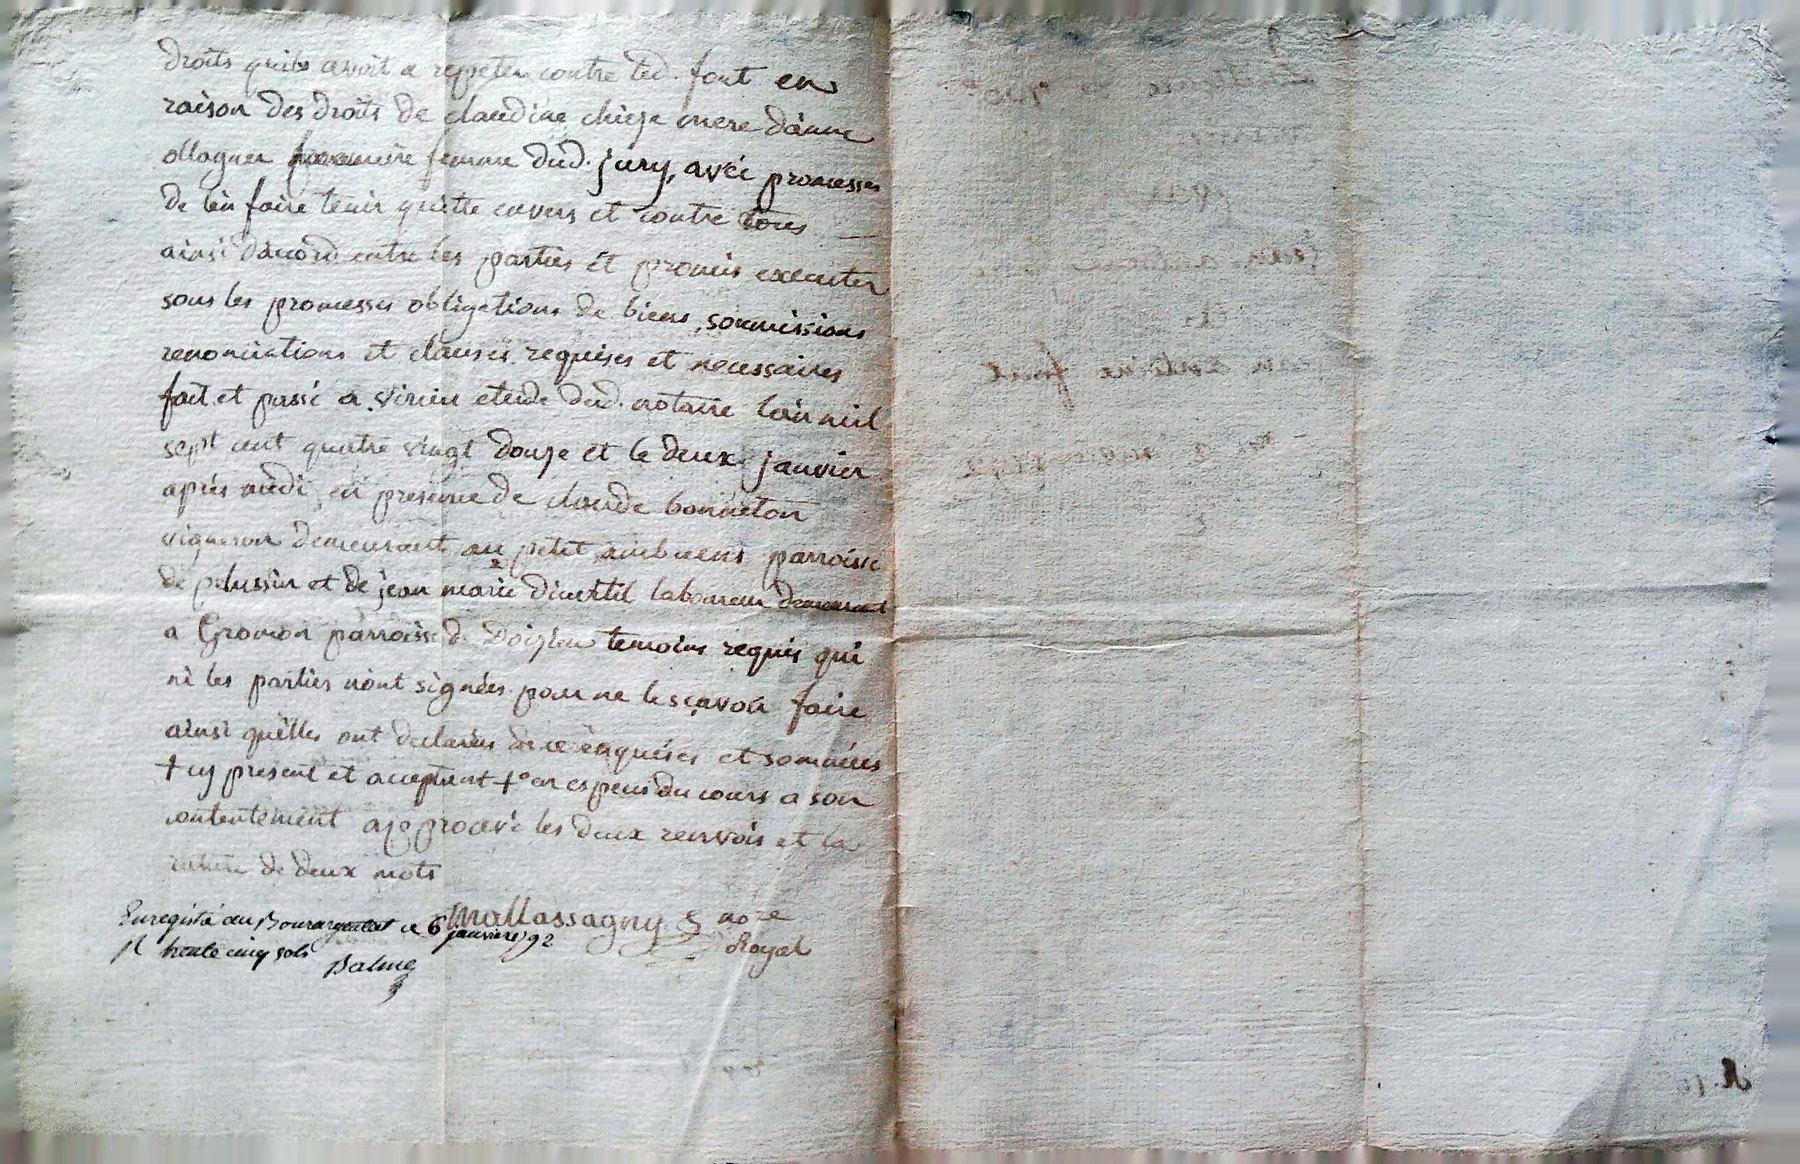 droits qu'ils avoit a reppeter contre led. font en
raison des droits de claudine chieze mere d'anne
ollagner premiere femme dud. jury, avec promesses
de l'en faire tenir quitte envers et contre tous
ainsi d'acord entre les parties et promis executer
sous les promesses obligations de biens, soumissions
renonciations et clauses requises et necessaires
fait et passé a virieu etude dud. notaire l'an mil
sept cent quatre vingt douze et le deux janvier
aprés midi, en presence de claude bonneton
vigneron demeurant au petit embuens parroisse
de pelussin et de jean marie laboureur demeurant
a parroisse de Doizieu temoins requis qui
ni les parties n'ont signées pour ne le sçavoir faire
ainsi qu'elles ont declarées de ce enquises et sommées
+ cy present et acceptant +° en especes du cours a son
contentement approuvé les deux renvois et la
rature de deux mots
Mallassagny no.re
Royal
Enregistré au Bourargental ce 6 janvier 92
R trente cinq sols